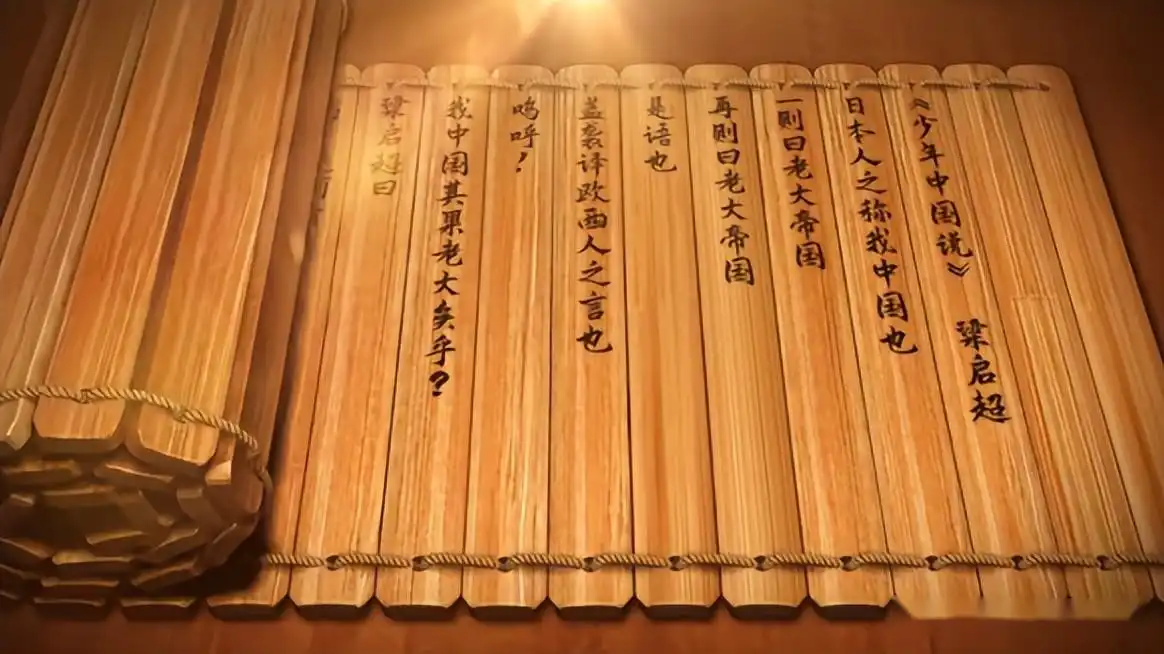 《少年中国说》 梁启超
日本人之称我中国也
一则曰老大帝国
再则曰老大帝国
是语也
盖袭译欧西人之言也
呜呼！
我中国其果老大矣乎？
梁启超曰